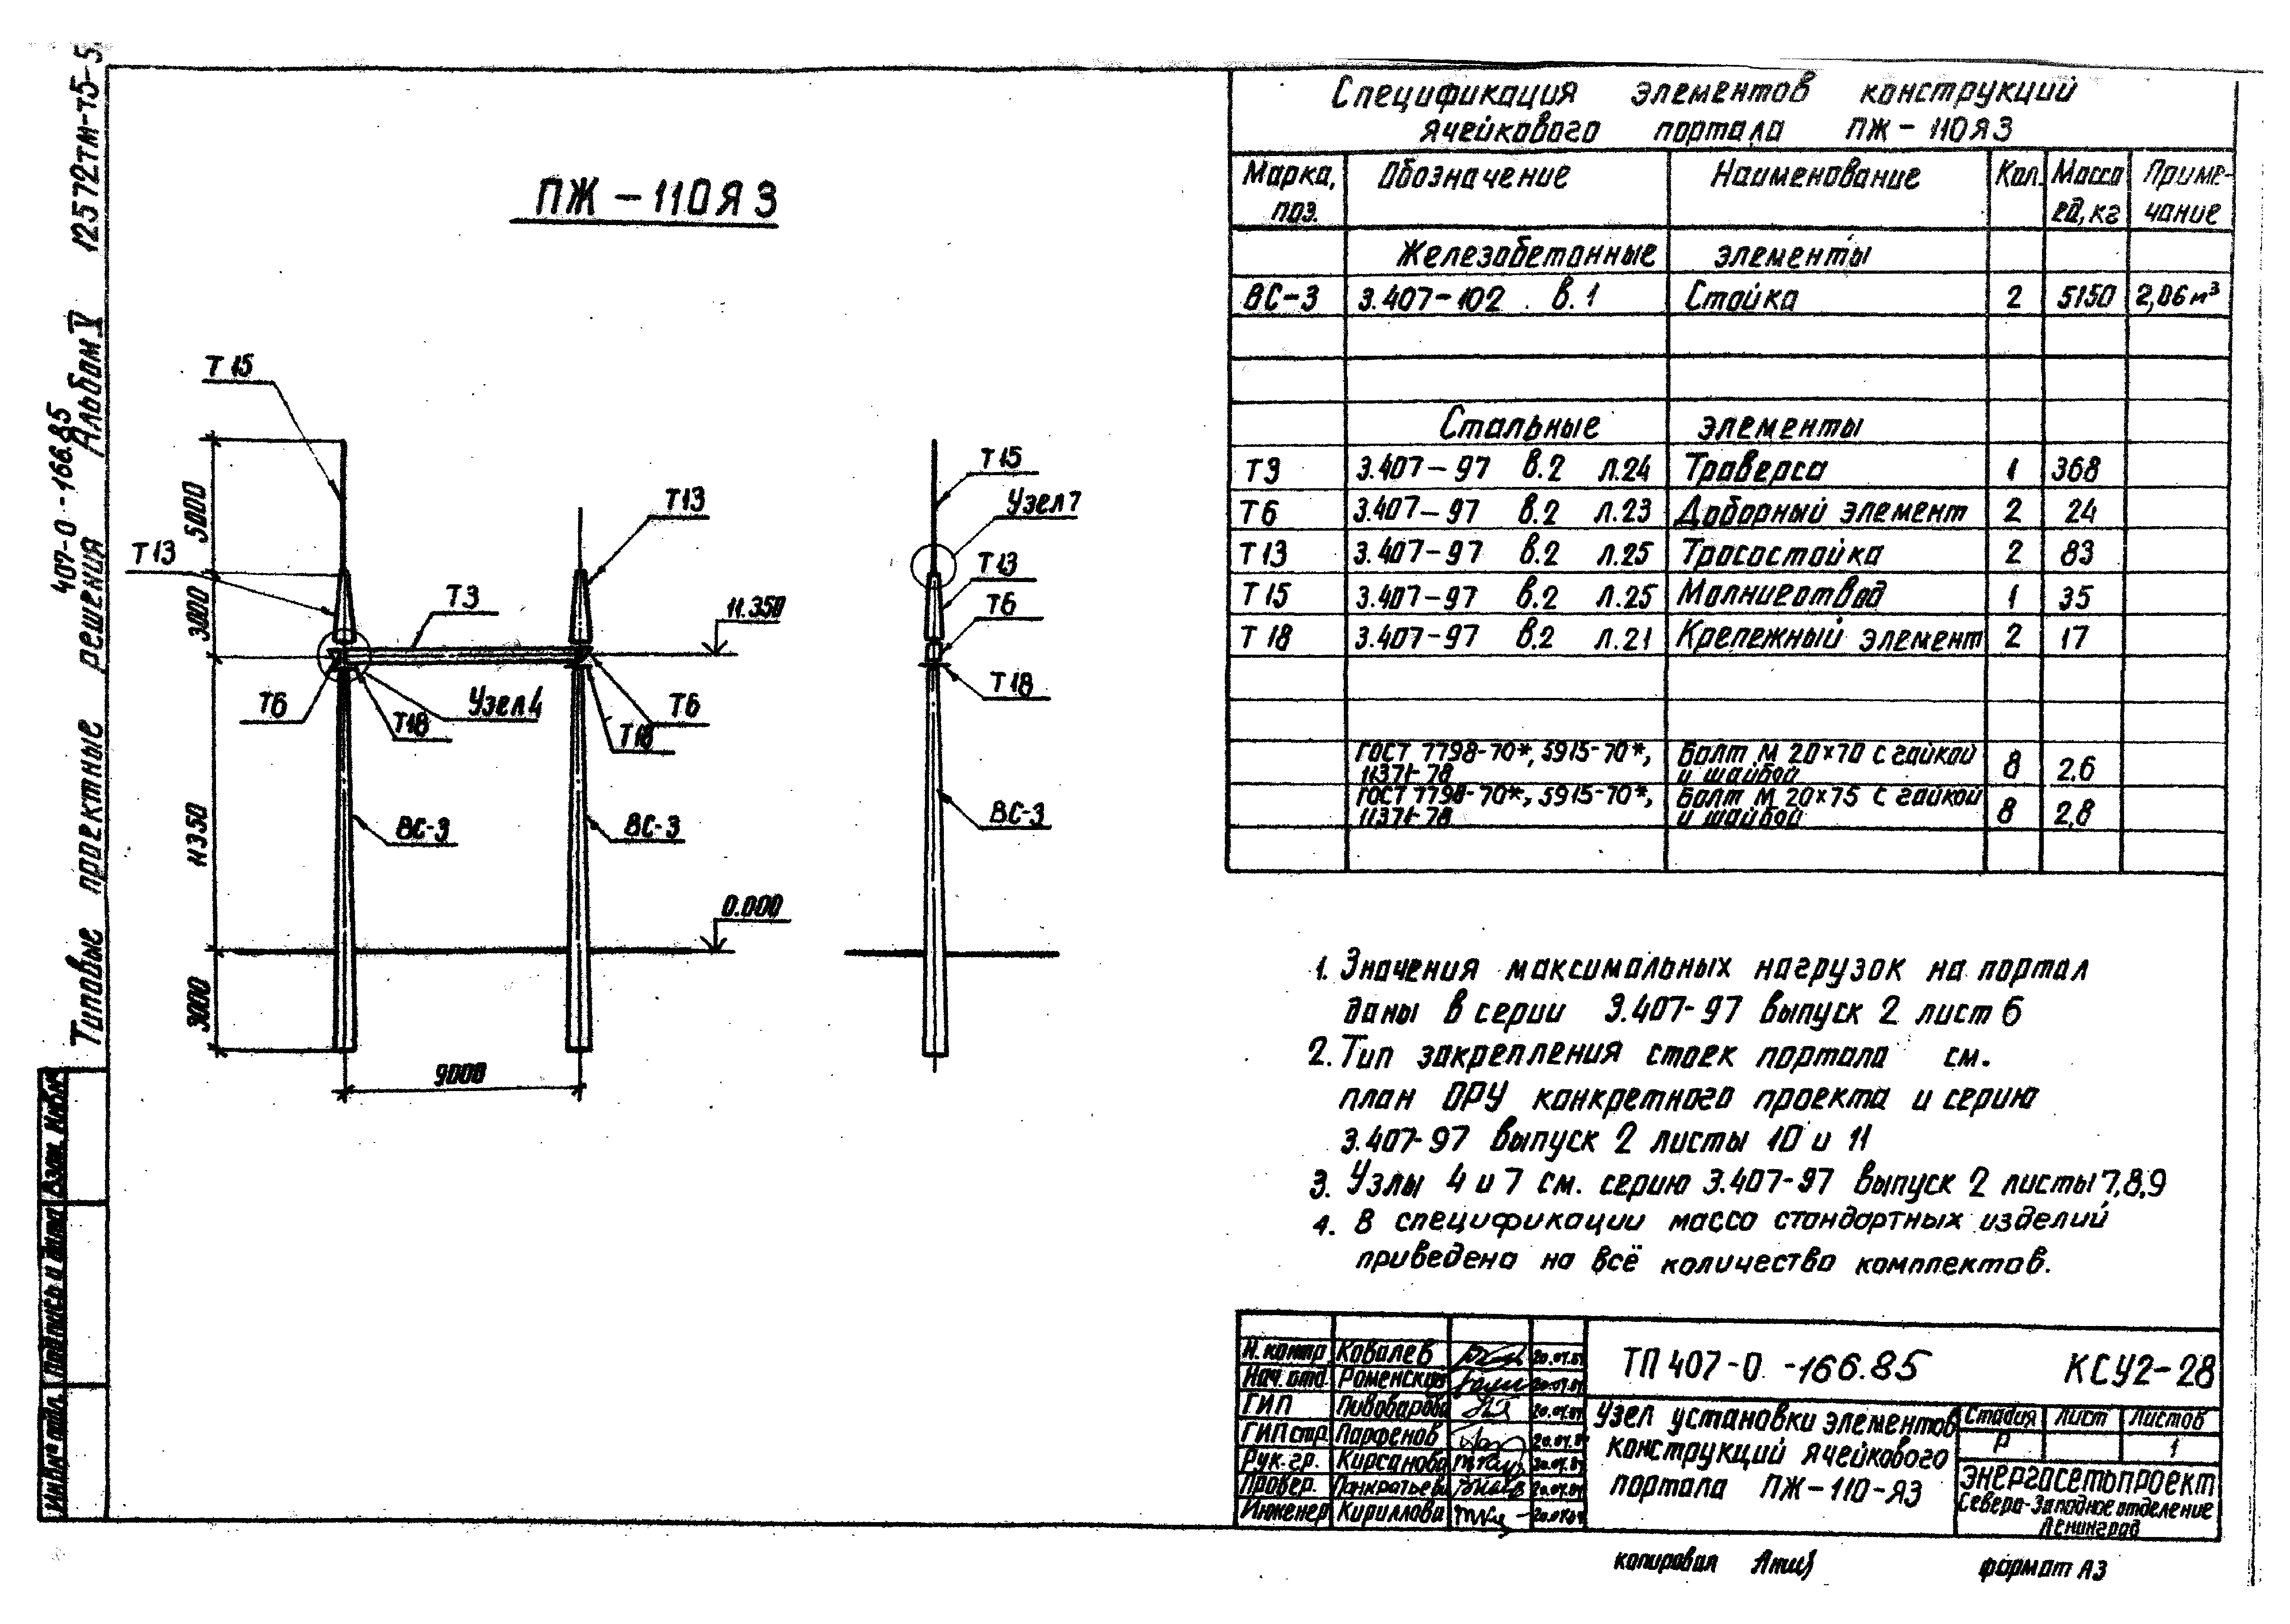 ПЖ – 110Я3
Т 15
Т 13
Т3
Т13
11.350
Т6
Т18
Узел 4
Т18
Т6
ВС-3
ВС-3
0.000
5000
3000
11350
3000
9000
Т15
Узел 7
Т13
Т6
Т18
ВС-3
Спецификация элементов конструкций
ячейкового портала ПЖ – 110Я3
Марка, поз. Обозначение Наименование Кол. Масса ед, кг Примечание
Железобетонные элементы
ВС-3 3.407-102 в.1 Стойка 2 5150 2,06 м³
Стальные элементы
Т3 3.407-97 в.2 л.24 Траверса 1 368
Т6 3.407-97 в.2 л.23 Доборный элемент 2 24
Т13 3.407-97 в.2 л.25 Тросостойка 2 83
Т15 3.407-97 в.2 л.25 Молниеотвод 1 35
Т18 3.407-97 в.2 л.21 Крепежный элемент 2 17
ГОСТ 7798-70*, 5915-70*, 11371-78 Болт М 20×70 с гайкой и шайбой 8 2.6
ГОСТ 7798-70*, 5915-70*, 11371-78 Болт М 20×75 с гайкой и шайбой 8 2,8
1. Значения максимальных нагрузок на портал
даны в серии 3.407-97 выпуск 2 лист 6
2. Тип закрепления стоек портала см.
план ОРУ конкретного проекта и серию
3.407-97 выпуск 2 листы 10 и 11
3. Узлы 4 и 7 см. серию 3.407-97 выпуск 2 листы 7,8,9
4. В спецификации масса стандартных изделий
приведена на всё количество комплектов.
Н. контр. Ковалев
Нач. отд. Роменский
ГИП Пивоварова
ГИП стр. Парфенов
Рук. гр. Кирсанова
Провер. Панкратьева
Инженер Кириллова
ТП 407-0 -166.85 КСУ2-28
Узел установки элементов
конструкций ячейкового
портала ПЖ-110-Я3
Стадия Лист Листов
Р 1
Энергосетьпроект
Северо-Западное отделение
Ленинград
копировал
формат А3
Типовые проектные решения Альбом V 12572тм-т5-5
407-0 -166.85
Инв № подл. Подпись и дата Взам. Инв №